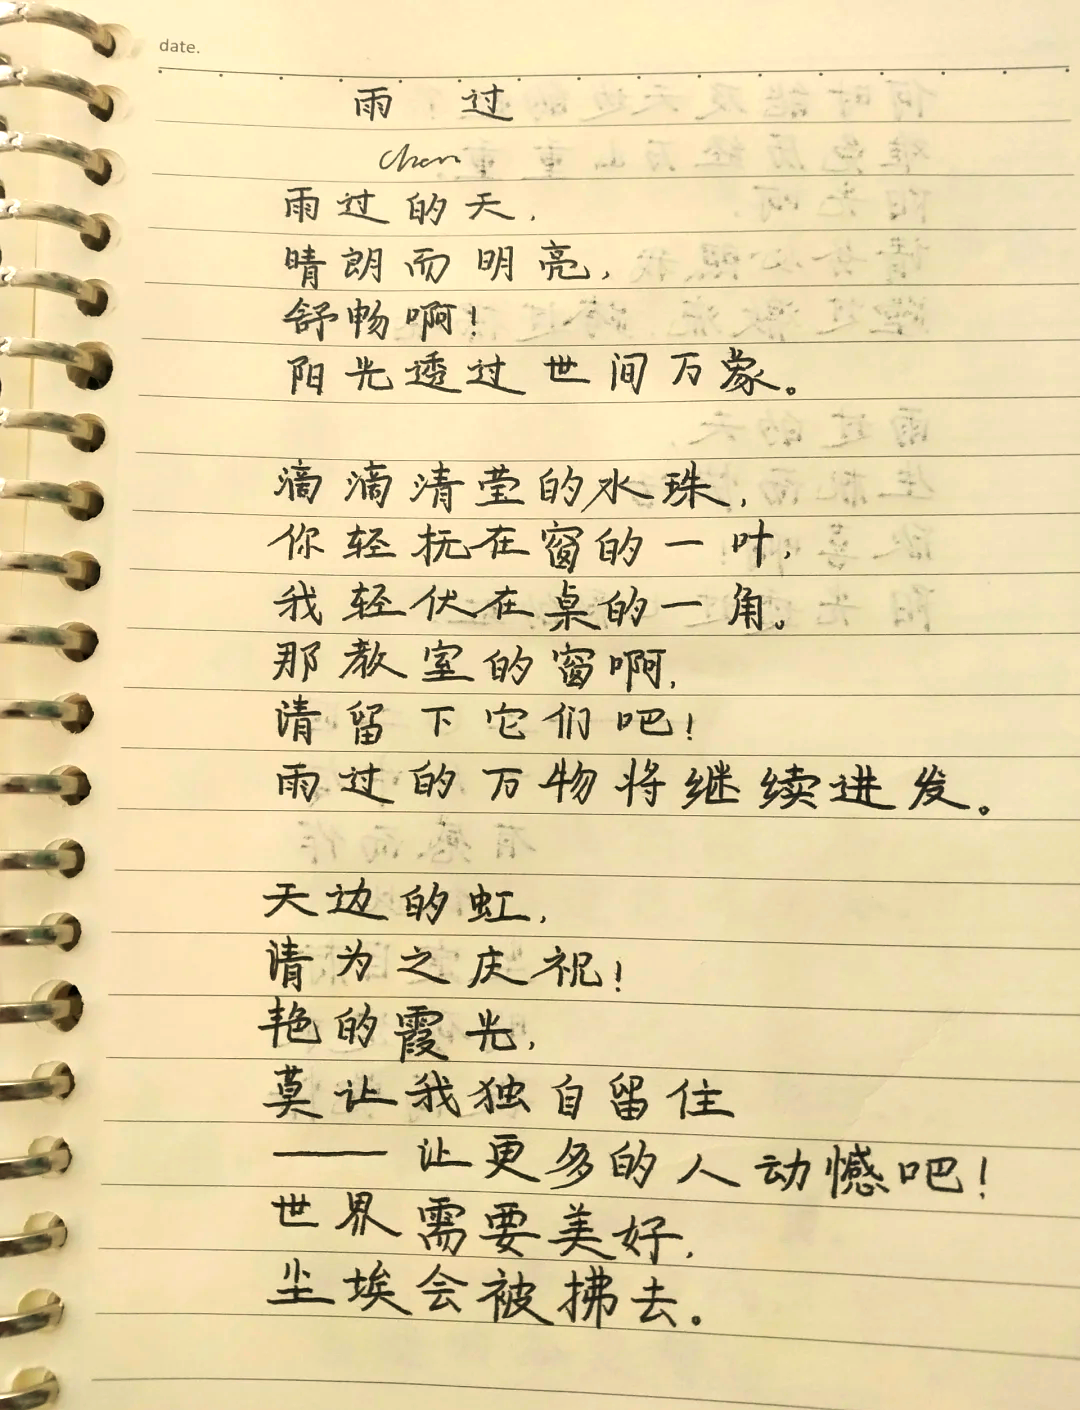 date.
雨 过
chen
雨过的天,
晴朗而明亮,
舒畅啊!
阳光透过世间万象。
滴滴清莹的水珠,
你轻抚在窗的一叶,
我轻伏在桌的一角。
那教室的窗啊,
请留下它们吧!
雨过的万物将继续进发。
天边的虹,
请为之庆祝!
艳的霞光,
莫让我独自留住
——让更多的人动憾吧!
世界需要美好,
尘埃会被拂去。